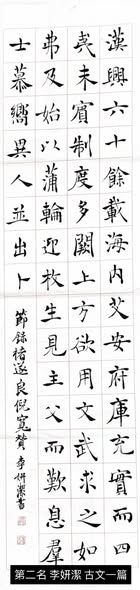 漢興六十餘載海内艾安府庫充實而四
夷未賓制度多闕上方欲用文武求之如
弗及始以蒲輪迎枚生見主父而歎息羣
士慕嚮異人並出卜
節錄褚遂良倪寬贊 李妍潔書
第二名 李妍潔 古文一篇